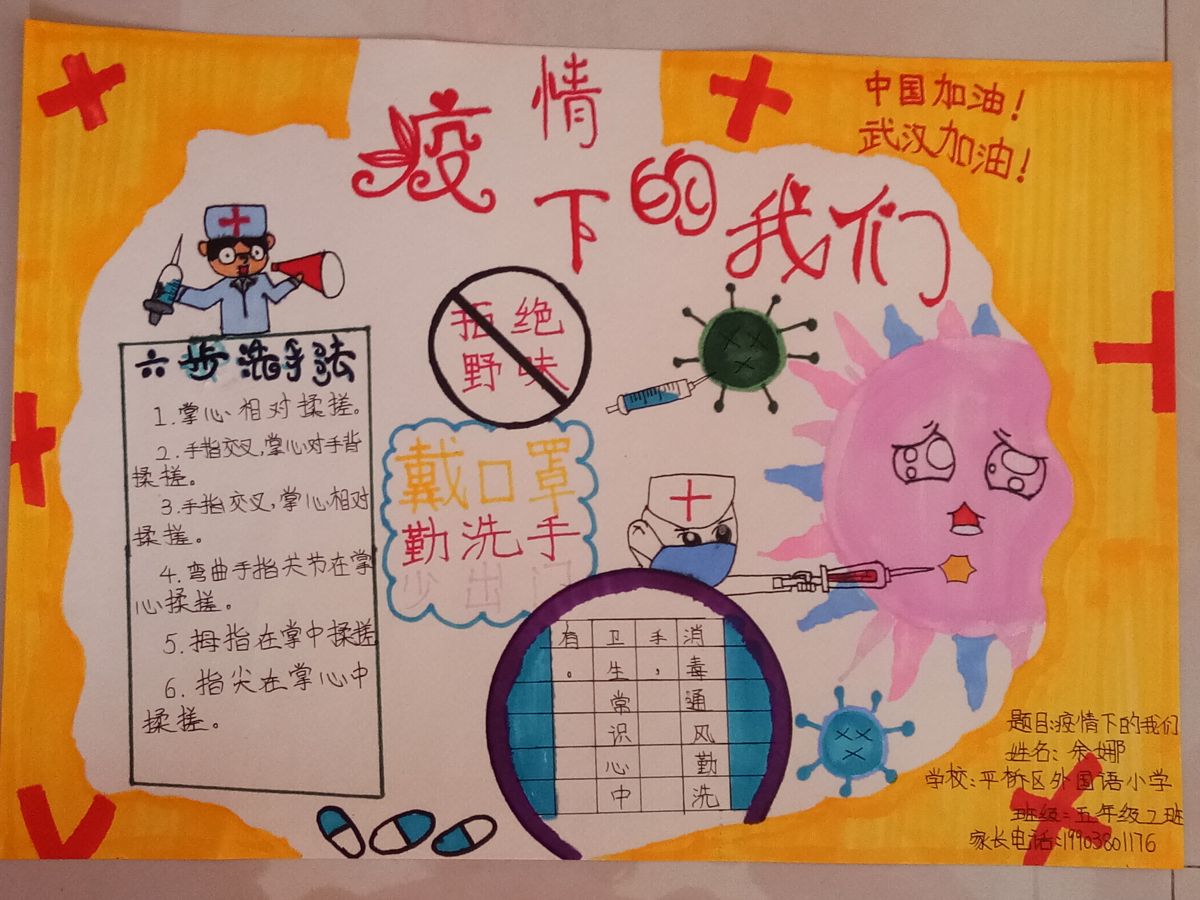 疫情下的我们
中国加油！
武汉加油！
拒绝
野味
六步洗手法
1.掌心相对揉搓。
2.手指交叉，掌心对手背
揉搓。
3.手指交叉，掌心相对
揉搓。
4.弯曲手指关节在掌
心揉搓。
5.拇指在掌中揉搓
6.指尖在掌心中
揉搓。
戴口罩
勤洗手
少出门
消毒通风勤洗
手，
卫生常识心中
有。
题目:疫情下的我们
姓名:余娜
学校:平桥区外国语小学
班级:五年级2班
家长电话:19903801176